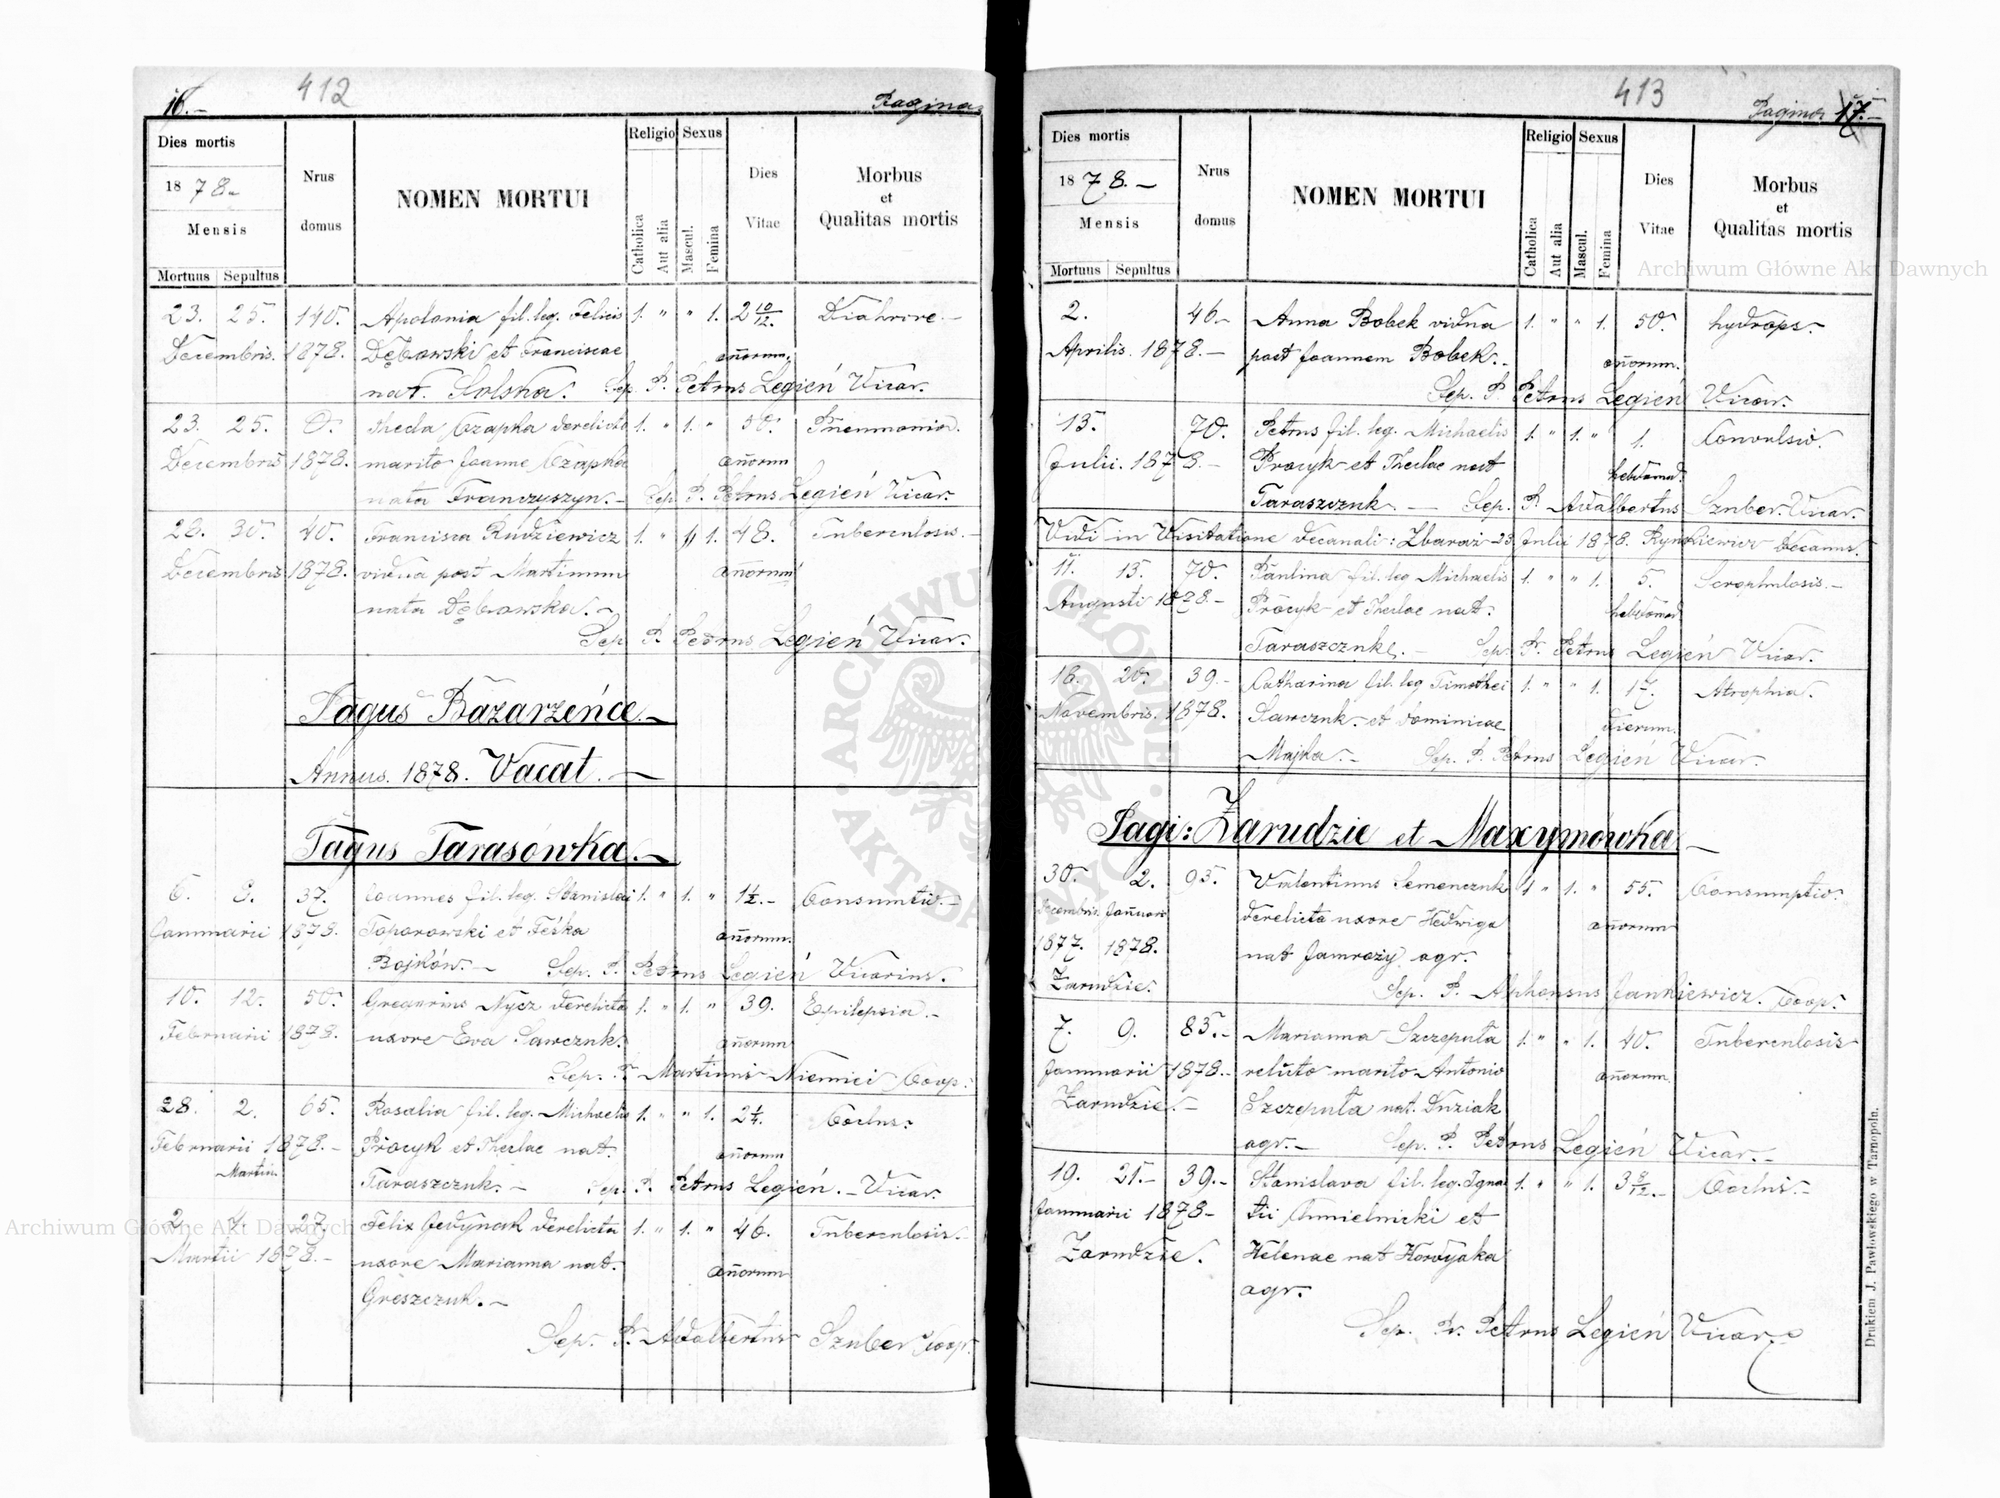 412
16.-
Pagina
Dies mortis
1878.-
Mensis
Mortuus Sepultus
Nrus domus
NOMEN MORTUI
Religio
Catholica
Aut alia
Sexus
Mascul.
Femina
Dies Vitae
Morbus et Qualitas mortis
23. 25. 140. Apolonia fil. leg. Felicis 1. " " 1. 2 10/12. Diahrore.-
Decembris. 1878. Dębowski et Franciscae añorum.
nat. Solska. Sep. P. Petrus Legień Vicar.
23. 25. Thecla Czapka derelicto 1. " 1. " 50. Pneumonia.
Decembris 1878. marito Joanne Czapka añorum
nata Franczyszyn.- Sep. P. Petrus Legień Vicar.
28. 30. 40. Francisca Rudziewicz 1. " 1. 48. Tuberculosis.-
Decembris 1878. vidua post Martinum añorum
nata Dębowska.-
Sep. P. Petrus Legień Vicar.
Pagus Bazarzeńce.-
Annus. 1878. Vacat.-
Pagus Tarasówka.-
6. 8. 37. Joannes fil. leg. Stanislai 1. " 1. " 1½.- Consumtio.-
Januarii 1878. Toporowski et Feśka añorum.
Bojków.- Sep. P. Petrus Legień Vicarius.
10. 12. 50. Gregorius Nycz derelicta 1. " 1. " 39. Epilepsia.-
Februarii 1878. uxore Eva Sawczuk. añorum
Sep. P. Martinus Niemiei Coop.
28. 2. 65. Rosalia fil. leg. Michaelis 1. " " 1. 2¼. Coclus.
Februarii 1878.- Procyk et Theclae nat. añorum
Martii. Taraszczuk.- Sep. P. Petrus Legień.- Vicar.
2. 4. 27. Felix Jedynak derelicta 1. " 1. " 46. Tuberculosis.-
Martii 1878.- uxore Marianna nat. añorum
Greszczuk.-
Sep. P. Adalbertus Szuber Coop.
413
Pagina 17.-
Dies mortis
1878.-
Mensis
Mortuus Sepultus
Nrus domus
NOMEN MORTUI
Religio
Catholica
Aut alia
Sexus
Mascul.
Femina
Dies Vitae
Morbus et Qualitas mortis
2. 46.- Anna Bobek vidua 1. " " 1. 50. hydrops.-
Aprilis. 1878.- post Joannem Bobek.- añorum.
Sep. P. Petrus Legień Vicar.
13. 70. Petrus fil. leg. Michaelis 1. " 1. " 1. Convulsio.
Julii. 1878.- Procyk et Theclae nat hebdomad.
Taraszczuk.- Sep. P. Adalbertus Szuber. Vicar.
Vidi in Visitatione decanali: Zbaraż 23. Julii 1878. Decanus.
11. 13. 70. Paulina fil. leg Michaelis 1. " " 1. 5. Scrophulosis.-
Augusti 1878.- Procyk et Theclae nat. hebdomad
Taraszczuk.- Sep. P. Petrus Legień Vicar.
18. 20. 39.- Catharina fil. leg Timothei 1. " " 1. 17. Atrophia.-
Novembris. 1878. Sawczuk.- et Dominicae dierum.
Majka.- Sep. P. Petrus Legień Vicar.
Pagi: Zarudzie et Maxymówka.-
30. 2. 93. Valentinus Semenczuk 1. " 1. " 55. Consumptio.
Decembris. Januarii derelicta uxore Hedwiga añorum
1877. 1878. nat Jamrozy. agr.
Zarudzie. Sep. P. Alphonsus Jankiewicz. Coop.
7. 9. 85.- Marianna Szczepuła 1. " " 1. 40. Tuberculosis
Januarii 1878.- relicto marito Antonio añorum.
Zarudzie.- Szczepuła nat. Duziak
agr.- Sep. P. Petrus Legień Vicar.-
19. 21.- 39.- Stanislava fil. leg. Igna 1. " " 1. 3 9/12.- Coclus.-
Januarii 1878- tii Chmielnicki et
Zarudzie. Helenae nat Kordyaka
agr.
Sep. Pr. Petrus Legień Vicar.
Drukiem J. Pawłowskiego w Tarnopolu.
Archiwum Główne Akt Dawnych
Archiwum Główne Akt Dawnych
ARCHIWUM GŁÓWNE AKT DAWNYCH